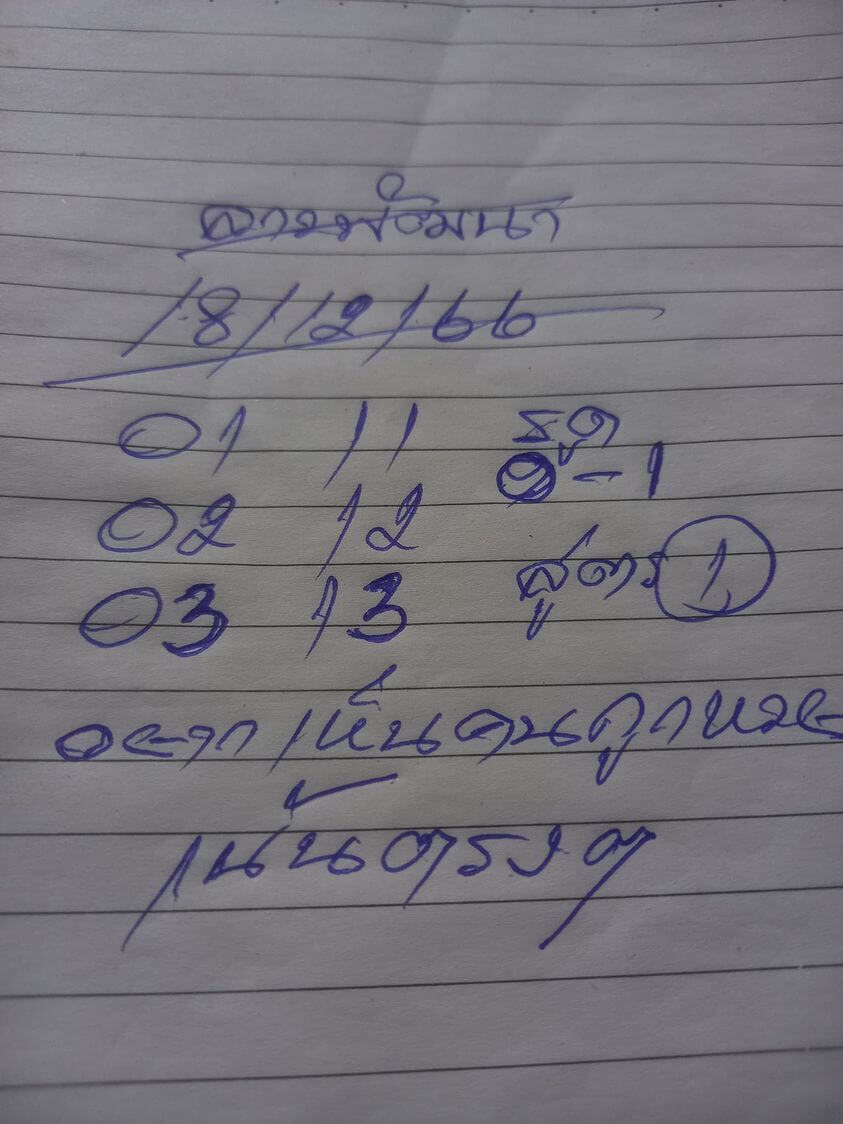 ลาวพัฒนา
18/12/66
01 11 รูด
0-1
02 12
03 13 สูตร 1
อยากเห็นคนถูกหวย
เน้นตรงๆ